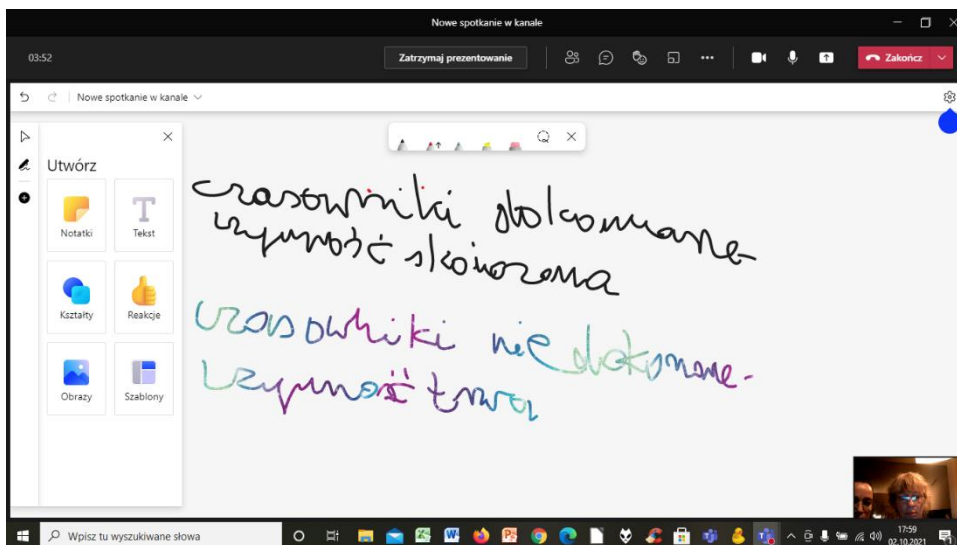 Nowe spotkanie w kanale
03:52
Zatrzymaj prezentowanie
Zakończ
Nowe spotkanie w kanale
Utwórz
Notatki
Tekst
Kształty
Reakcje
Obrazy
Szablony
czasowniki dokonane -
czynność skończona
czasowniki niedokonane -
czynność trwa
Wpisz tu wyszukiwane słowa
17:59
02.10.2021